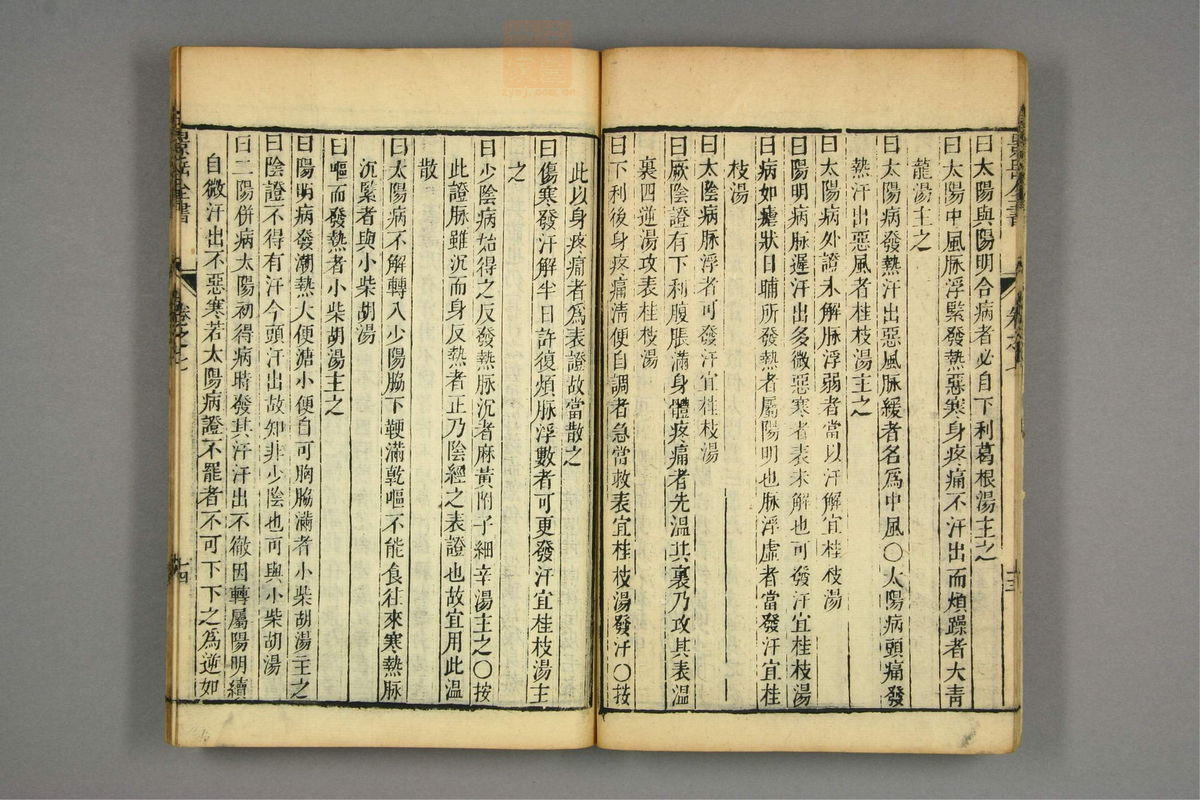 景岳全書
卷之七
十三
曰太陽與陽明合病者必自下利葛根湯主之
曰太陽中風脉浮緊發熱惡寒身疼痛不汗出而煩躁者大青
龍湯主之
曰太陽病發熱汗出惡風脉緩者名為中風〇太陽病頭痛發
熱汗出惡風者桂枝湯主之
曰太陽病外證未解脉浮弱者當以汗解宜桂枝湯
曰陽明病脉遲汗出多微惡寒者表未解也可發汗宜桂枝湯
曰病如瘧狀日晡所發熱者屬陽明也脉浮虛者當發汗宜桂
枝湯
曰太陰病脉浮者可發汗宜桂枝湯
曰厥陰證有下利腹脹滿身體疼痛者先溫其裏乃攻其表溫
裏四逆湯攻表桂枝湯
曰下利後身疼痛清便自調者急當救表宜桂枝湯發汗〇按
此以身疼痛者為表證故當散之
曰傷寒發汗解半日許復煩脉浮數者可更發汗宜桂枝湯主
之
曰少陰病始得之反發熱脉沉者麻黃附子細辛湯主之〇按
此證脉雖沉而身反熱者正乃陰經之表證也故宜用此溫
散
曰太陽病不解轉入少陽脇下鞕滿乾嘔不能食往來寒熱脉
沉緊者與小柴胡湯
曰嘔而發熱者小柴胡湯主之
曰陽明病發潮熱大便溏小便自可胸脇滿者小柴胡湯主之
曰陰證不得有汗今頭汗出故知非少陰也可與小柴胡湯
曰二陽併病太陽初得病時發其汗汗出不徹因轉屬陽明續
自微汗出不惡寒若太陽病證不罷者不可下下之為逆如
景岳全書
卷之七
十四
zysj.com.cn